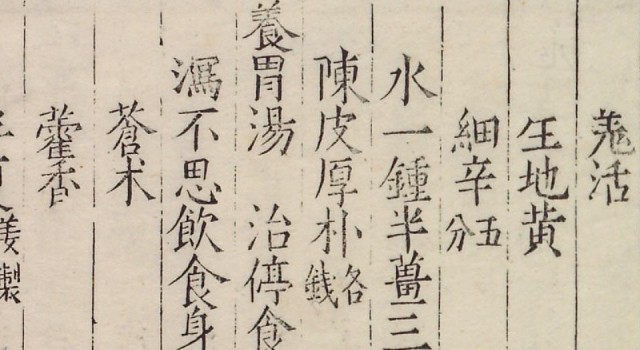 羗活
生地黄
細辛五分
水一鍾半薑三
陳皮厚朴各錢
養胃湯 治停食
瀉不思飲食身
蒼术
藿香
製